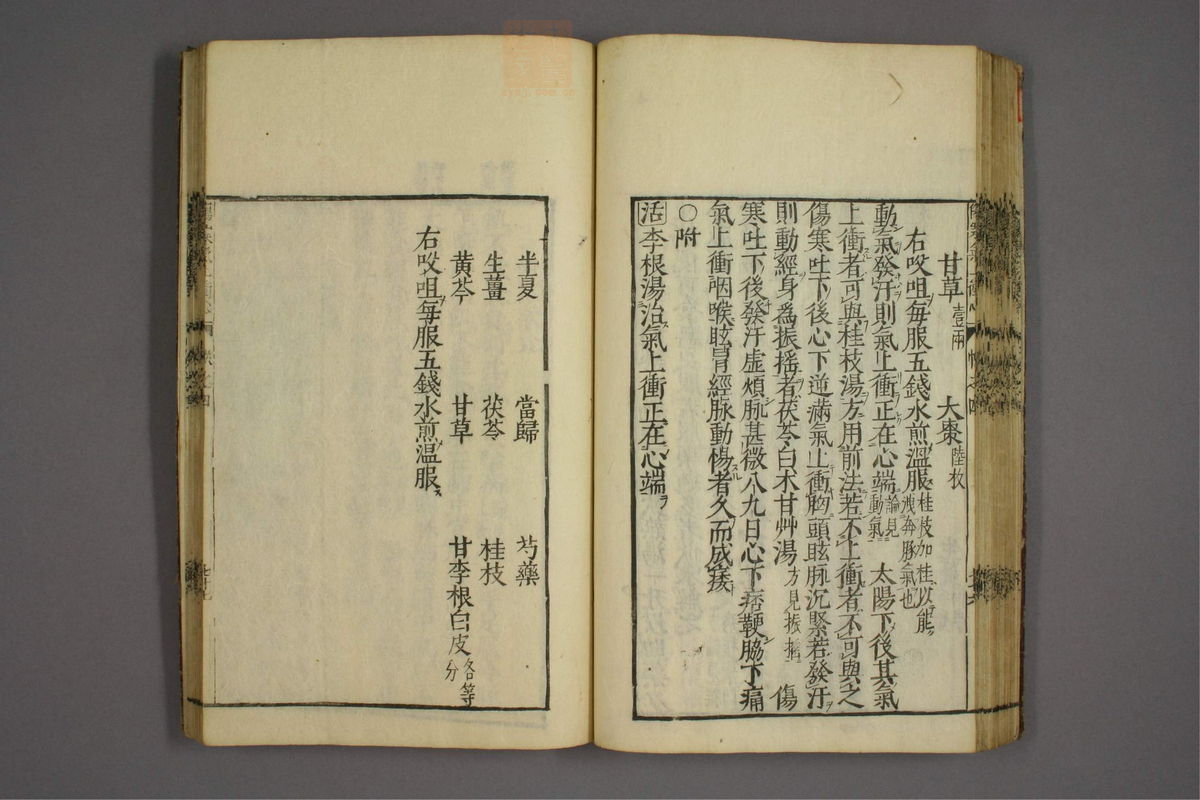 甘草壹兩　大棗陸枚
右㕮咀每服五錢水煎溫服桂枝加桂以能洩奔豚氣也
動氣發汗則氣上衝正在心端論見動氣　太陽下後其氣
上衝者可與桂枝湯方用前法若不上衝者不可與之
傷寒吐下後心下逆滿氣上衝胸頭眩脉沉緊若發汗
則動經身爲振搖者茯苓白朮甘艸湯方見振搖　傷
寒吐下後發汗虛煩脉甚微八九日心下痞鞕脇下痛
氣上衝咽喉眩冐經脉動惕者久而成痿
〇附
活李根湯治氣上衝正在心端
半夏　當歸　芍藥
生薑　茯苓　桂枝
黃芩　甘草　甘李根白皮各等分
右㕮咀每服五錢水煎溫服